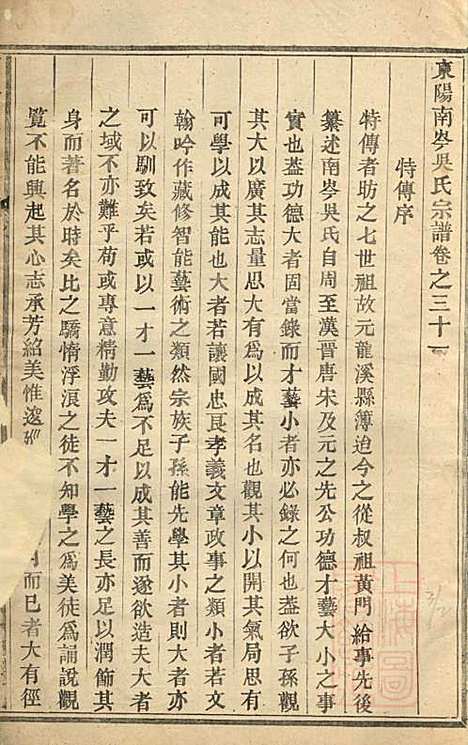 東陽南岑吳氏宗譜卷之三十一
特傳序
特傳者昉之七世祖故元龍溪縣簿迨今之從叔祖黃門 給事先後
纂述南岑吳氏自周至漢晉唐宋及元之先公功德才藝大小之事
實也葢功德大者固當錄而才藝小者亦必錄之何也葢欲子孫觀
其大以廣其志量思大有為以成其名也觀其小以開其氣局思有
可學以成其能也大者若讓國忠良孝義文章政事之類小者若文
翰吟作藏修智能藝術之類然宗族子孫能先學其小者則大者亦
可以馴致矣若或以一才一藝為不足以成其善而遂欲造夫大者
之域不亦難乎苟或專意精勤攻夫一才一藝之長亦足以潤飾其
身而著名於時矣比之驕惰浮浪之徒不知學之為美徒為誦說觀
覽不能興起其心志承芳紹美惟邃 而已者大有徑